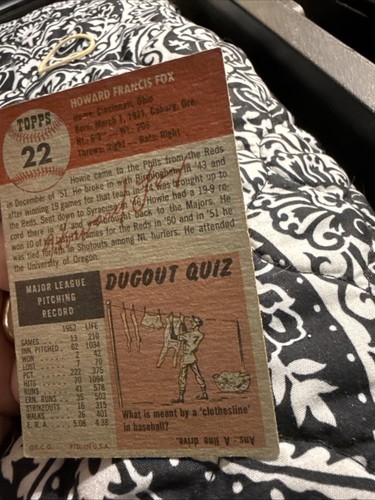 TOPPS
22
HOWARD FRANCIS FOX
Home: Cincinnati, Ohio
Born: March 1, 1921, Coburg, Ore.
Ht.: 6'3" Wt.: 206
Throws: Right — Bats: Right
Howie came to the Phils from the Reds
in December of '51. He broke in with Birmingham in '43 and
after winning 19 games for that team in '44 was brought up to
the Reds. Sent down to Syracuse, Howie had a 19-9 re-
cord there in and was brought back to the Majors. He
won 10 of games for the Reds in '50 and in '51 he
was tied for 4th in Shutouts among NL hurlers. He attended
the University of Oregon.
MAJOR LEAGUE
PITCHING
RECORD
1952 LIFE
GAMES 13 210
INN. PITCHED 62 1034
WON 2 42
LOST 7 70
PCT. .222 .375
HITS 70 1094
RUNS 41 576
ERN. RUNS 35 503
STRIKEOUTS 16 315
WALKS 26 401
E. R. A. 5.08 4.38
DUGOUT QUIZ
What is meant by a 'clothesline'
in baseball?
Ans. A line drive.
©T.C.G. PTD. IN U.S.A.